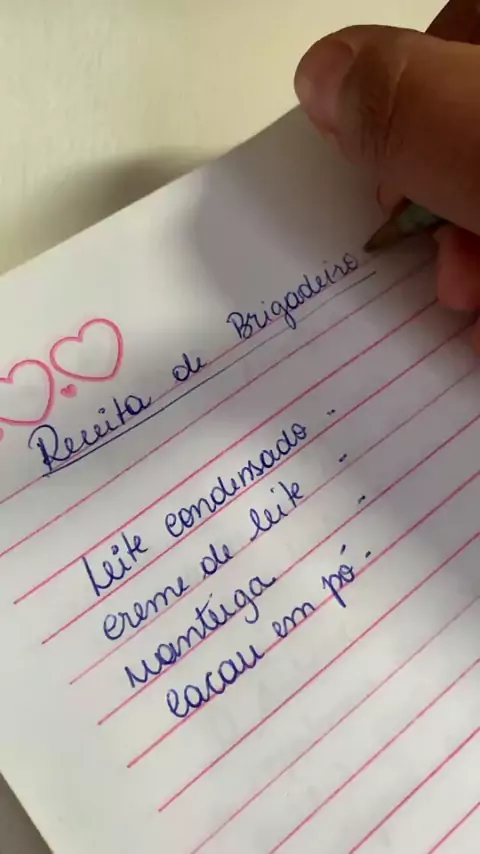 Receita de Brigadeiro
Leite condensado ..
creme de leite ..
manteiga ..
cacau em pó ..